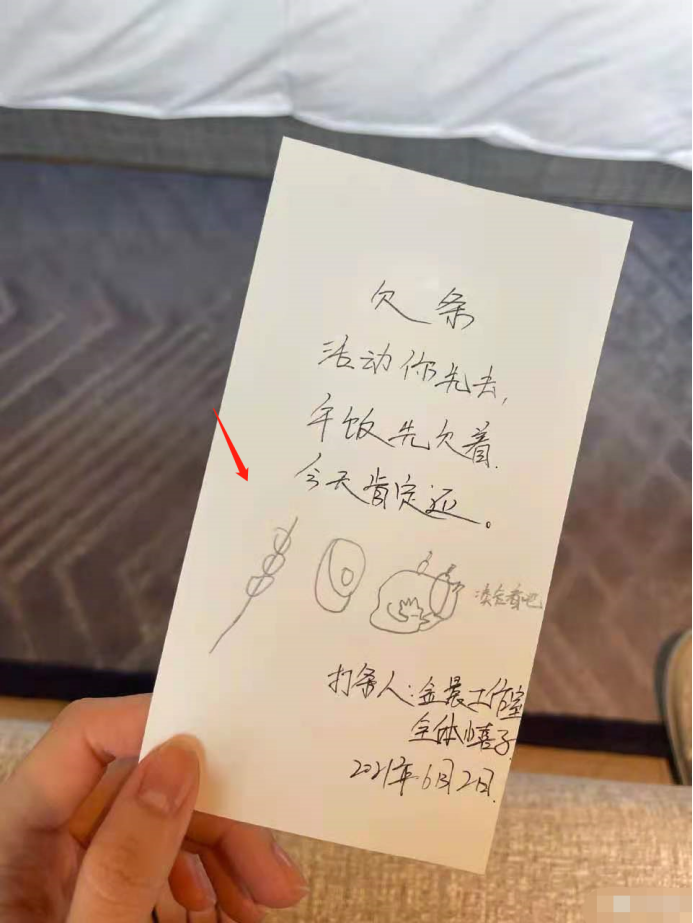 欠条
活动你先去,
午饭先欠着.
今天肯定还。
打条人:金晨工作室
全体小喜子
2021年6月2日.